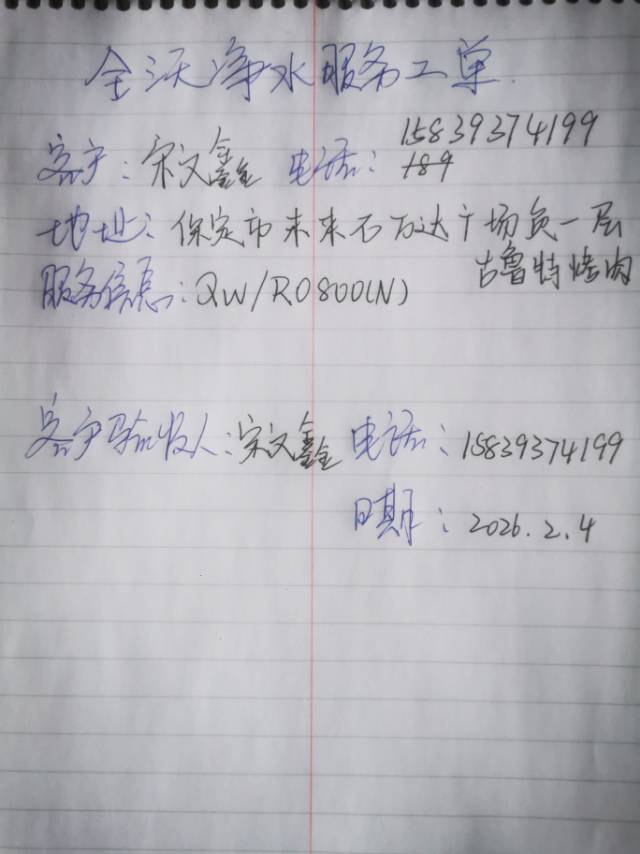 全沃净水服务工单
15839374199
客户：宋文鑫 电话：189
地址：保定市未来石万达广场负一层
古鲁特烤肉
服务信息：QW/RO800(N)
客户验收人：宋文鑫 电话：15839374199
日期：2026.2.4